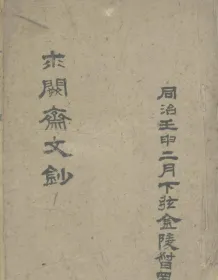 同治壬申二月下弦金陵
求闕齋文鈔